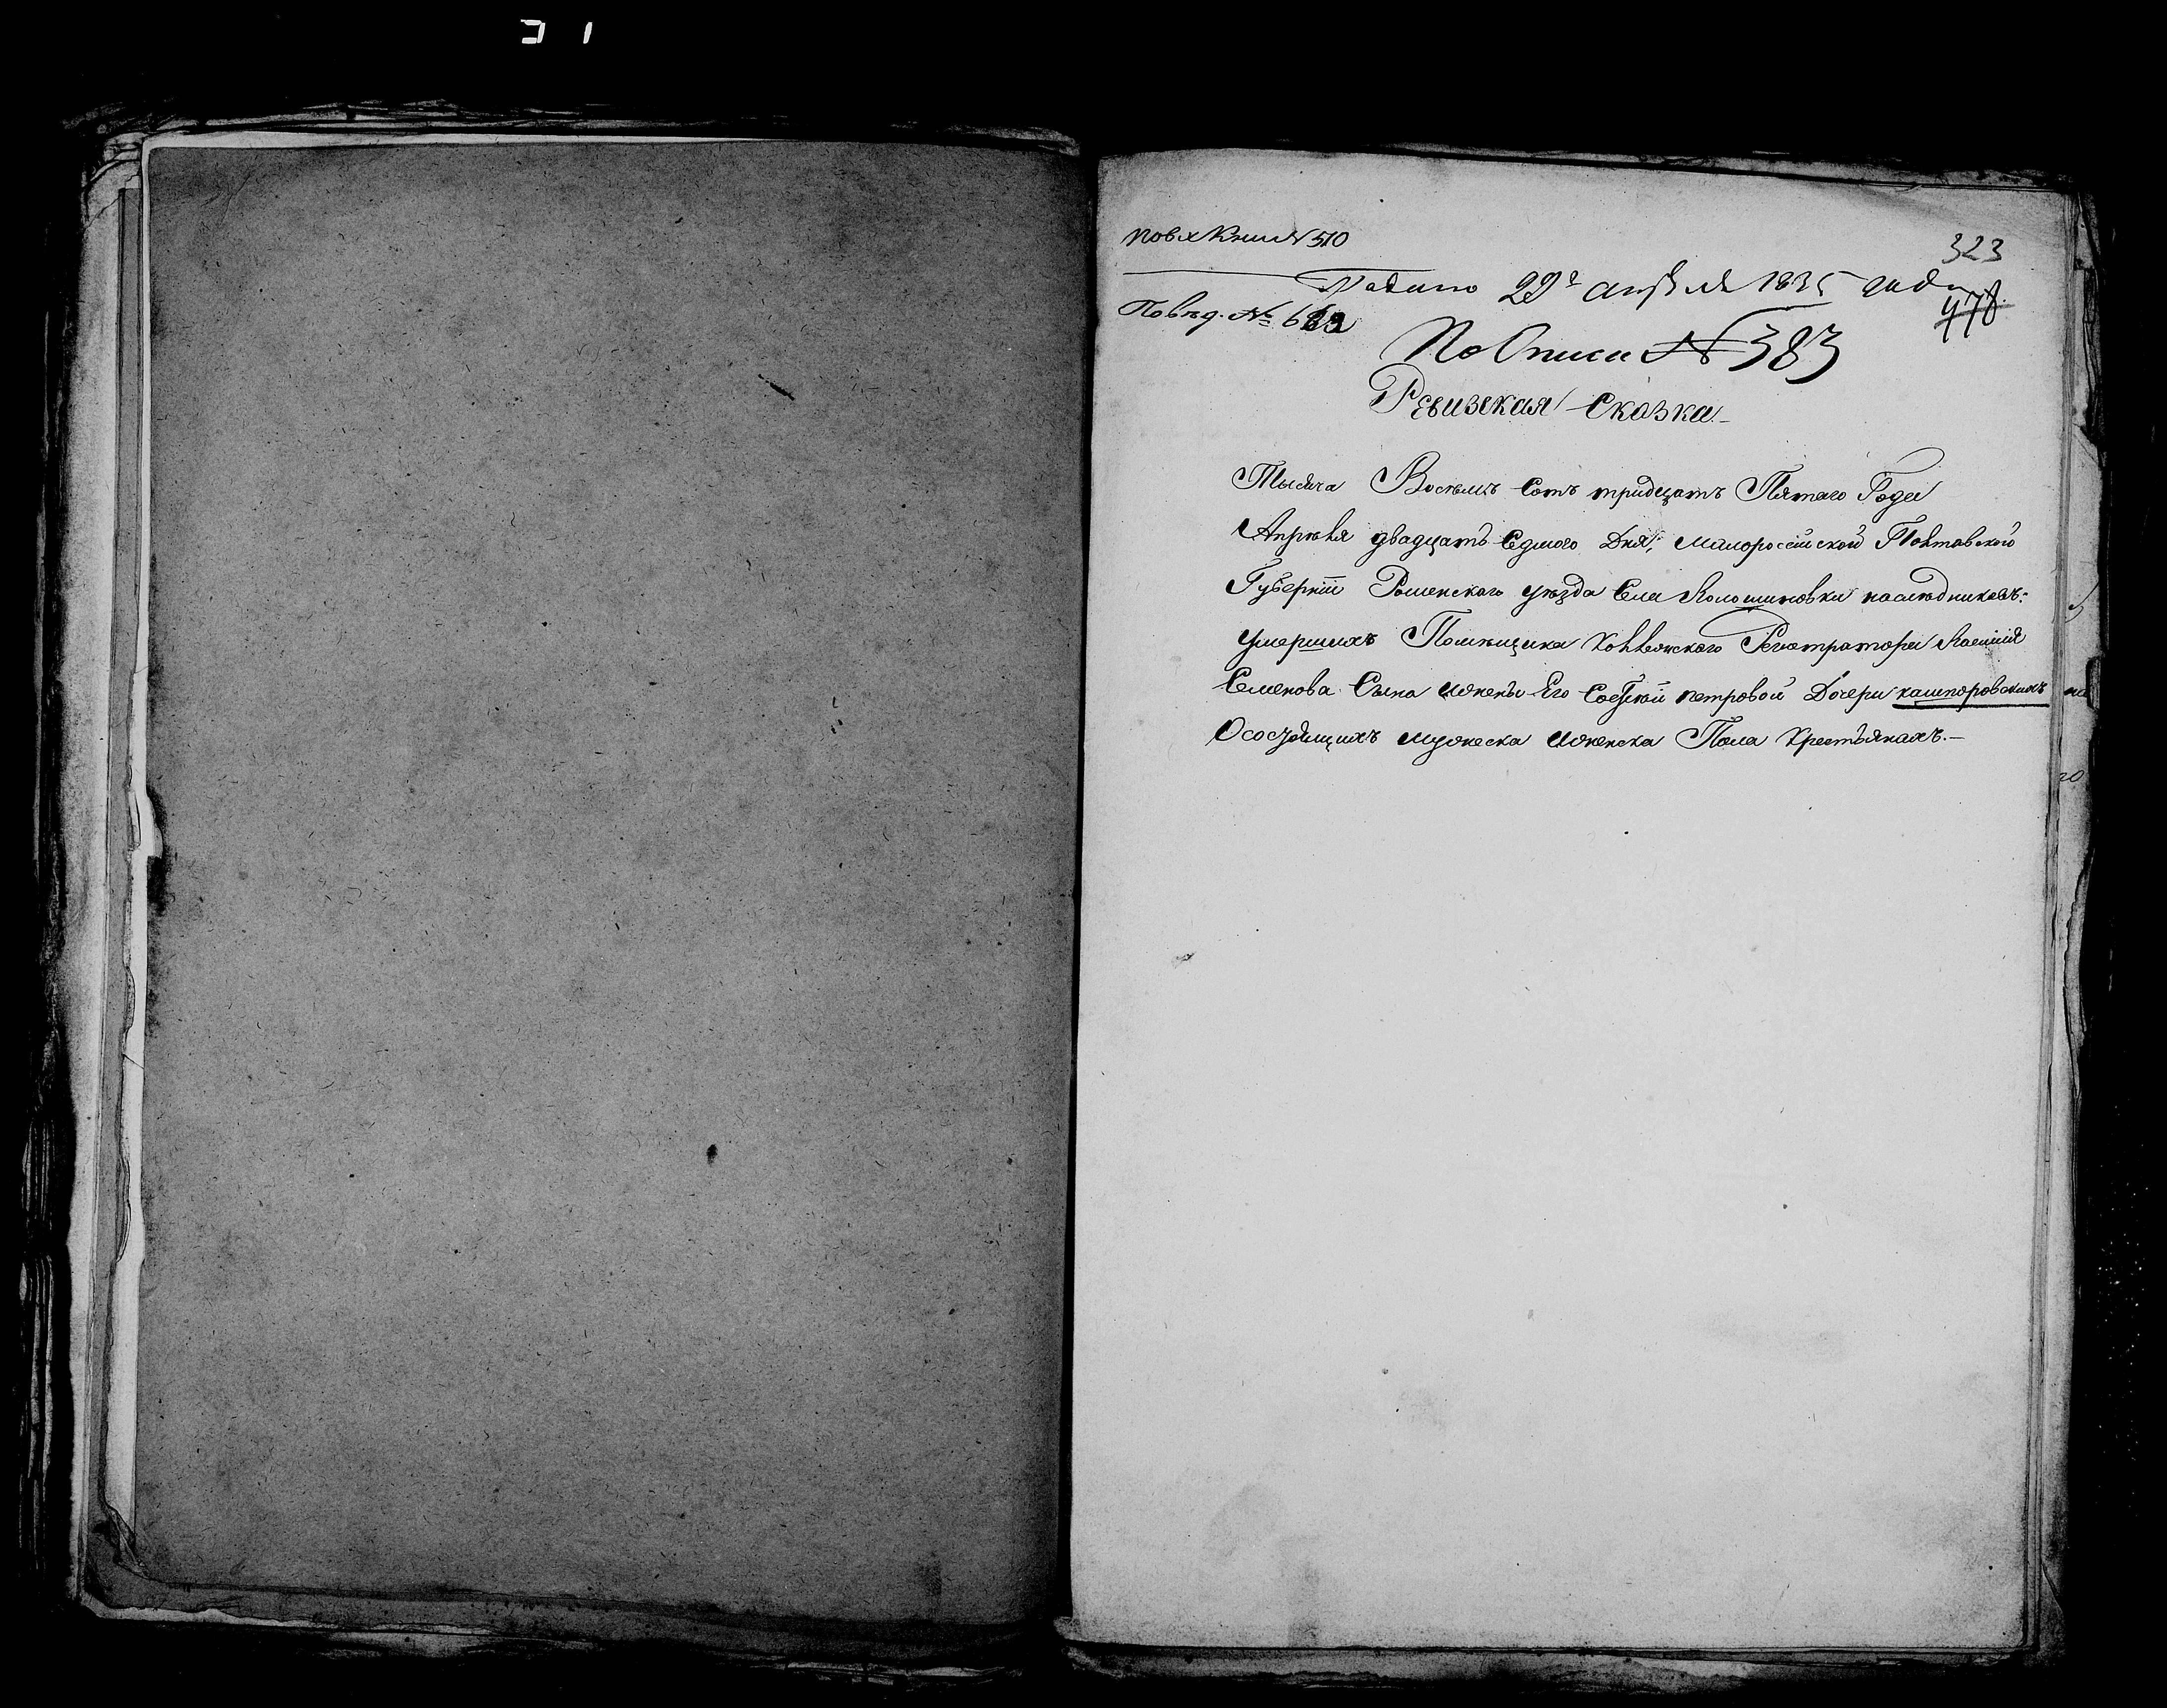 По вх Книг № 510
323
Подано 29г апреля 1835 года
978
По вѣд. № 663
По Описи № 383
Ревизская Сказка
Тысяча Восемь Сотъ тридцать Пятаго Года
Апреля двадцать Седмого Дня; Малороссійской Полтавской
Губерніи Роменского уезда Села наследниковъ:
умершихъ Помещика Коллежского Регистратора
Семенова Сына жены Его Софіи петровой Дочери кашпоровскихъ
О состоящихъ мужеска женска Пола Крестьянахъ.—